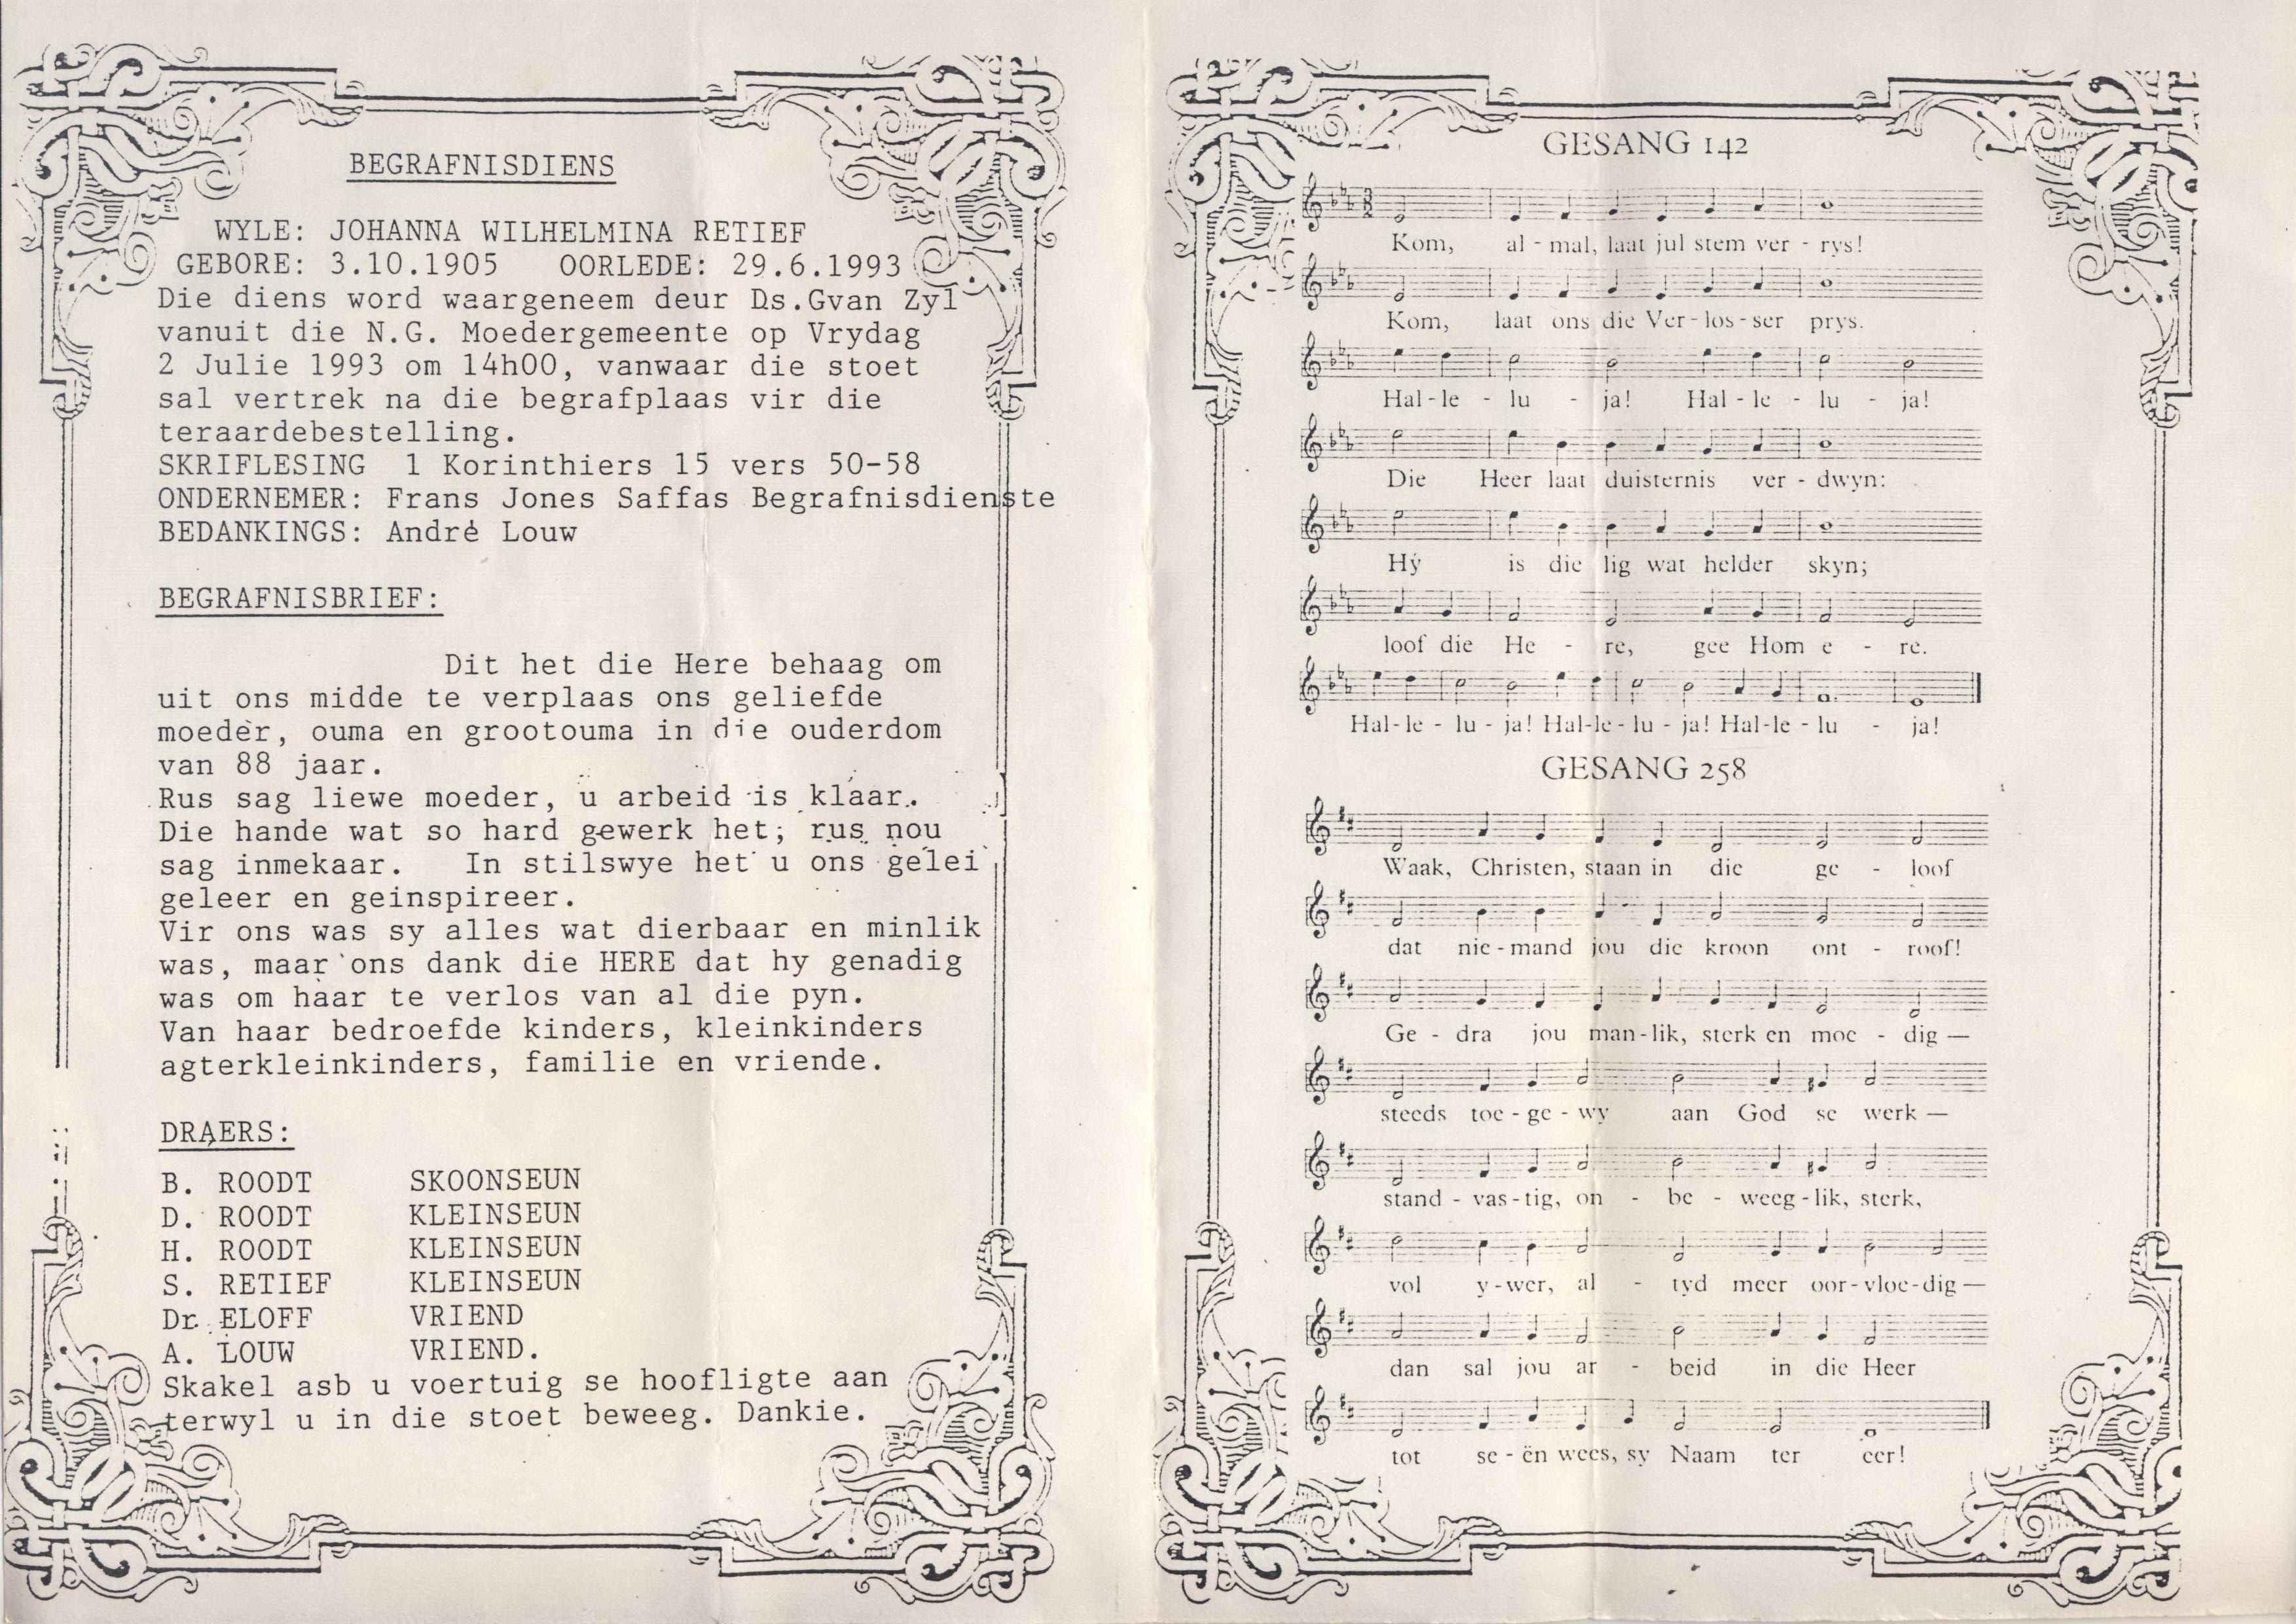 BEGRAFNISDIENS
WYLE: JOHANNA WILHELMINA RETIEF
GEBORE: 3.10.1905 OORLEDE: 29.6.1993
Die diens word waargeneem deur Ds.Gvan Zyl
vanuit die N.G. Moedergemeente op Vrydag
2 Julie 1993 om 14h00, vanwaar die stoet
sal vertrek na die begrafplaas vir die
teraardebestelling.
SKRIFLESING 1 Korinthiers 15 vers 50-58
ONDERNEMER: Frans Jones Saffas Begrafnisdienste
BEDANKINGS: André Louw
BEGRAFNISBRIEF:
Dit het die Here behaag om
uit ons midde te verplaas ons geliefde
moeder, ouma en grootouma in die ouderdom
van 88 jaar.
Rus sag liewe moeder, u arbeid is klaar.
Die hande wat so hard gewerk het; rus nou
sag inmekaar. In stilswye het u ons gelei
geleer en geinspireer.
Vir ons was sy alles wat dierbaar en minlik
was, maar ons dank die HERE dat hy genadig
was om haar te verlos van al die pyn.
Van haar bedroefde kinders, kleinkinders
agterkleinkinders, familie en vriende.
DRAERS:
B. ROODT SKOONSEUN
D. ROODT KLEINSEUN
H. ROODT KLEINSEUN
S. RETIEF KLEINSEUN
Dr. ELOFF VRIEND
A. LOUW VRIEND.
Skakel asb u voertuig se hoofligte aan
terwyl u in die stoet beweeg. Dankie.
GESANG 142
Kom, al - mal, laat jul stem ver - rys!
Kom, laat ons die Ver - los - ser prys.
Hal - le - lu - ja! Hal - le - lu - ja!
Die Heer laat duisternis ver - dwyn:
Hý is die lig wat helder skyn;
loof die He - re, gee Hom e - re.
Hal - le - lu - ja! Hal - le - lu - ja! Hal - le - lu - ja!
GESANG 258
Waak, Christen, staan in die ge - loof
dat nie - mand jou die kroon ont - roof!
Ge - dra jou man - lik, sterk en moe - dig —
steeds toe - ge - wy aan God se werk —
stand - vas - tig, on - be - weeg - lik, sterk,
vol y - wer, al - tyd meer oor - vloe - dig —
dan sal jou ar - beid in die Heer
tot se - ën wees, sy Naam ter eer!